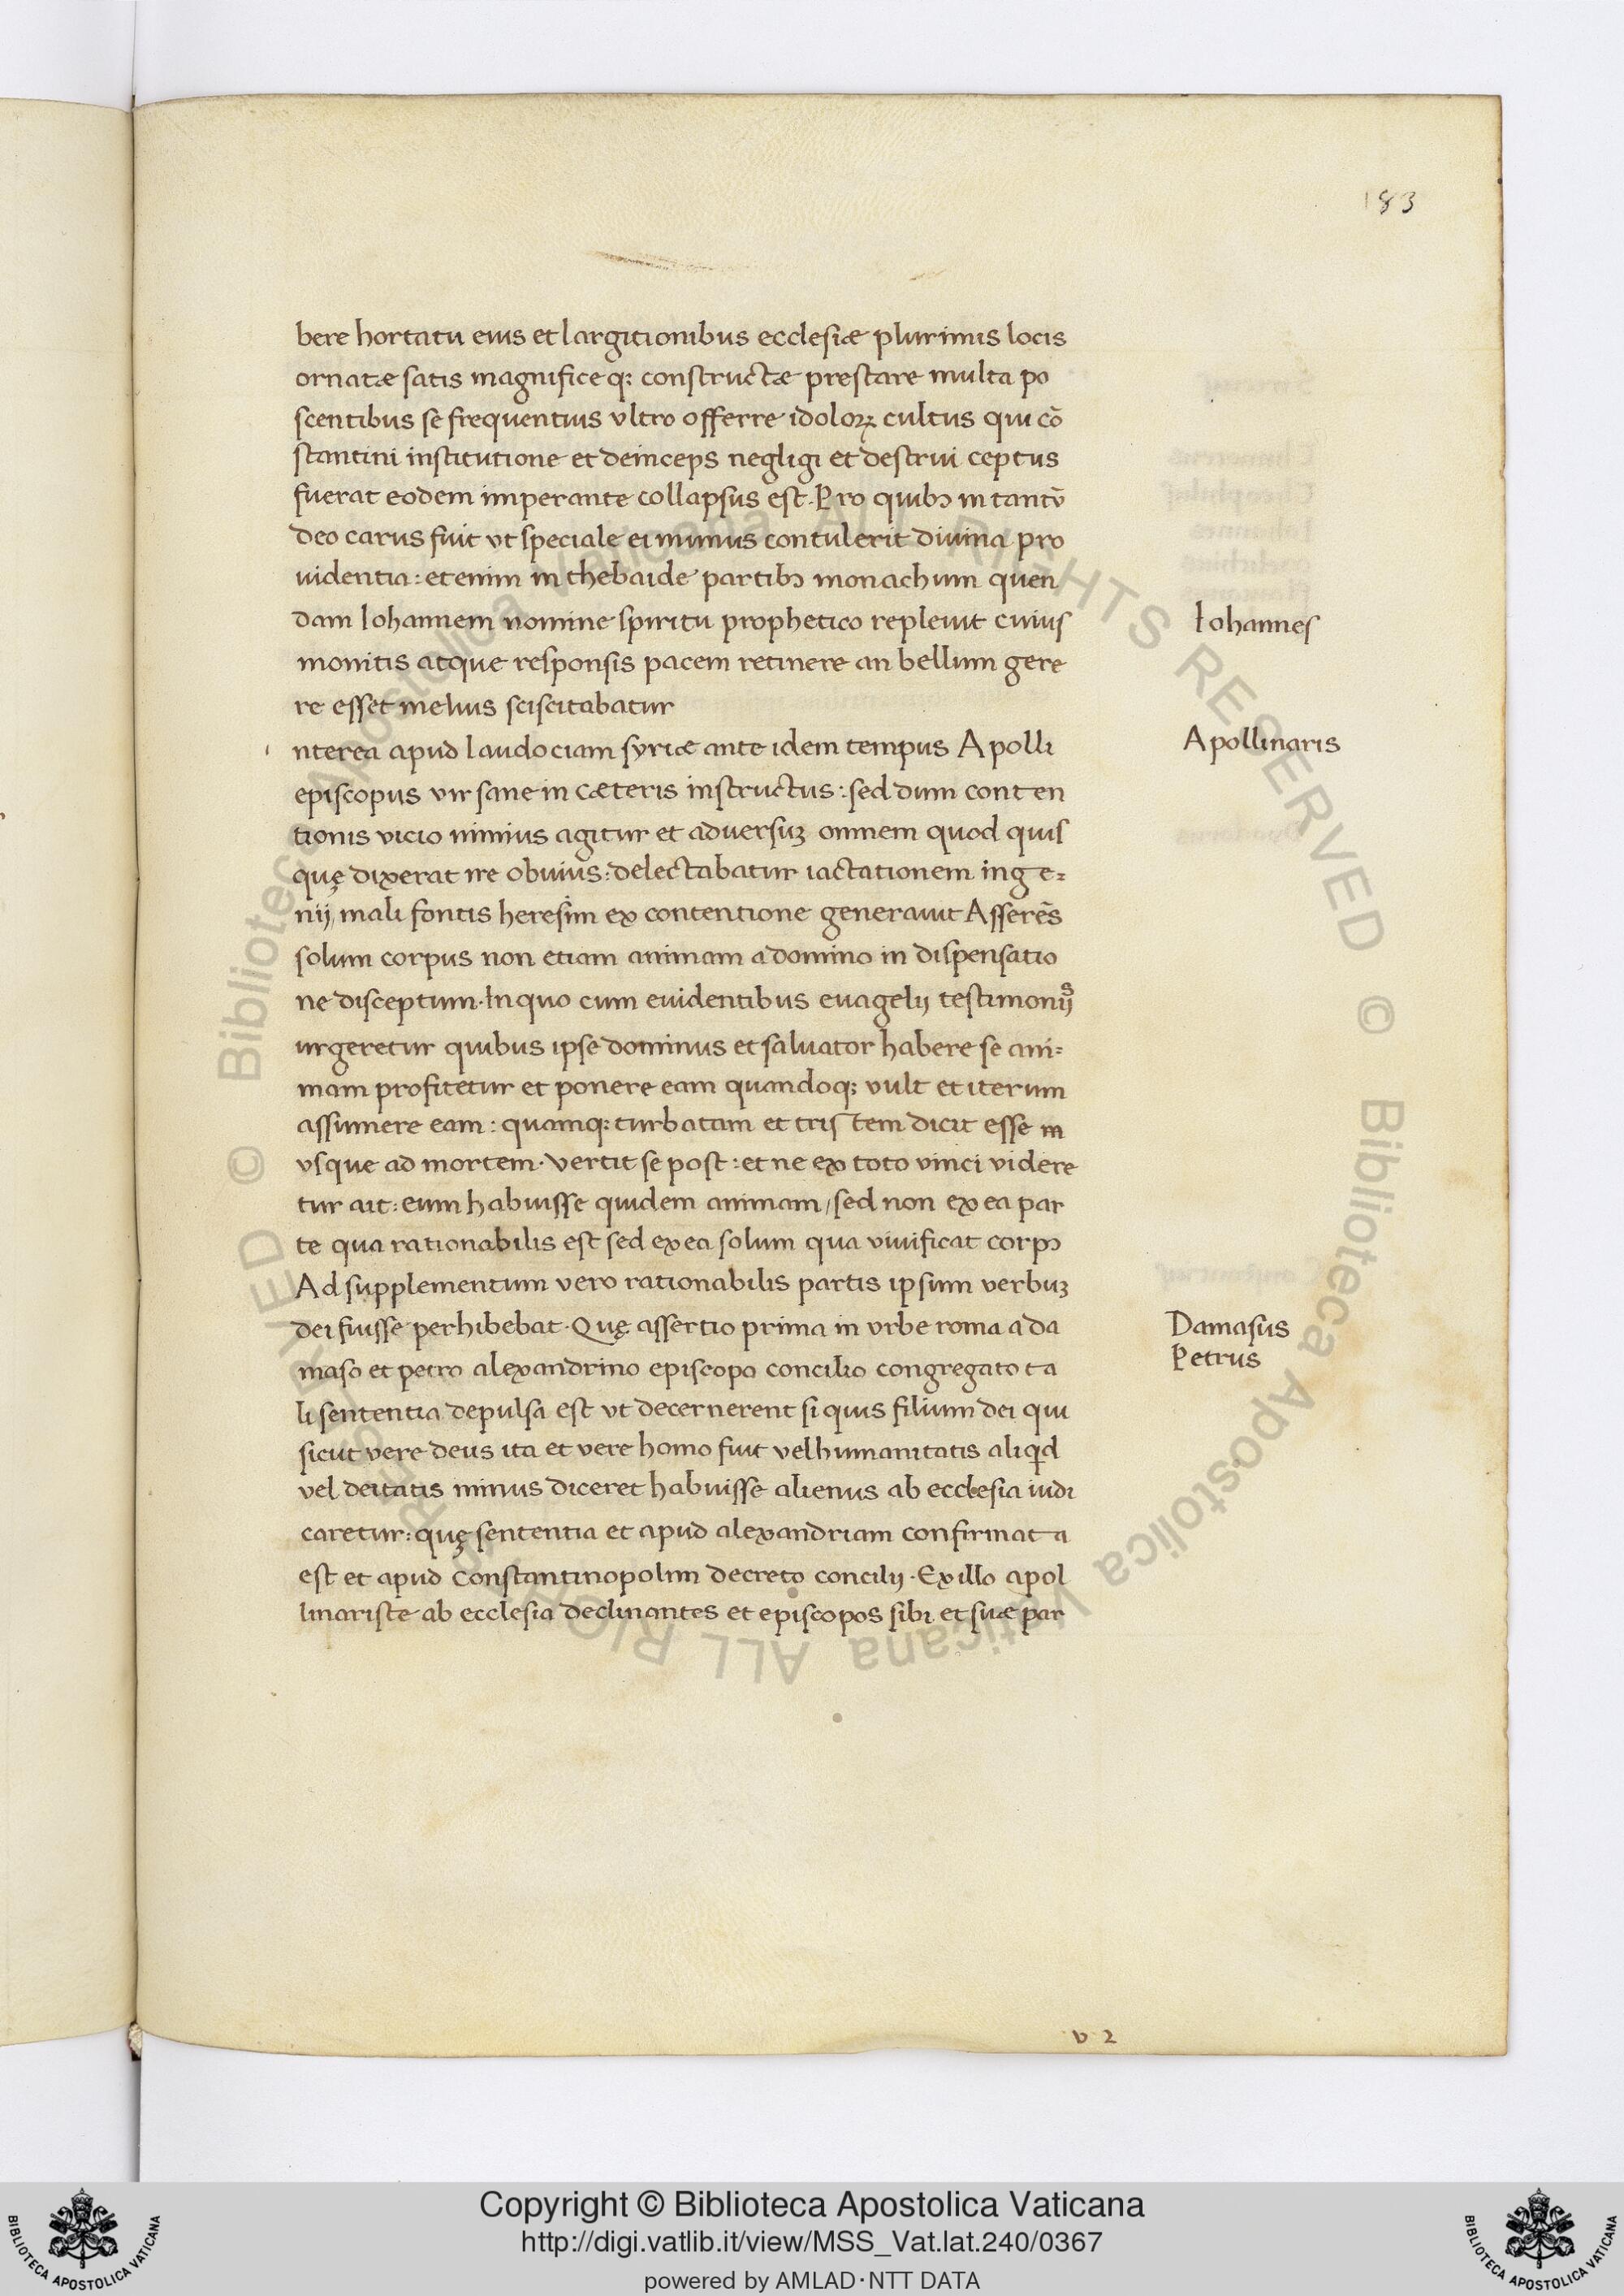 183
bere hortatu eius et largitionibus ecclesiæ plurimis locis
ornatæ satis magnificeq; constructæ prestare multa po
scentibus se frequentius vltro offerre idoloꝝ cultus qui cō
stantini institutione et deinceps negligi et destrui ceptus
fuerat eodem imperante collapsus est. Pro quibꝰ in tantū
deo carus fuit vt speciale ei munus contulerit diuina pro
uidentia: etenim in thebaide partibꝰ monachum quen
dam Iohannem nomine spiritu prophetico repleuit cuius
Iohannes
monitis atque responsis pacem retinere an bellum gere
re esset melius sciscitabatur
i nterea apud laudociam syriæ ante idem tempus Apolli
Apollinaris
episcopus vir sane in cæteris instructus: sed dum conten
tionis vicio nimius agitur et aduersuꝫ omnem quod quis
quę dixerat ire obuius: delectabatur iactationem inge=
nij, mali fontis heresim ex contentione generauit Asserēs
solum corpus non etiam animam a domino in dispensatio
ne disceptum. In quo cum euidentibus euagelij testimonijs
urgeretur quibus ipse dominus et saluator habere se ani=
mam profitetur et ponere eam quandoq; vult et iterum
assumere eam: quamq; turbatam et tristem dicit esse in
vsque ad mortem. vertit se post: et ne ex toto vinci videre
tur ait: eum habuisse quidem animam, sed non ex ea par
te qua rationabilis est sed ex ea solum qua viuificat corpꝰ
Ad supplementum vero rationabilis partis ipsum verbuꝫ
dei fuisse perhibebat. Quę assertio prima in vrbe roma a da
Damasus
Petrus
maso et petro alexandrino episcopo concilio congregato ta
li sententia depulsa est vt decernerent si quis filium dei qui
sicut vere deus ita et vere homo fuit vel humanitatis aliqd
vel deitatis minus diceret habuisse alienus ab ecclesia iudi
caretur: quę sententia et apud alexandriam confirmata
est et apud constantinopolim decreto concilij. Ex illo apol
linariste ab ecclesia declinantes et episcopos sibi et suæ par
b 2
© Biblioteca Apostolica Vaticana ALL RIGHTS RESERVED © Biblioteca Apostolica Vaticana ALL RIGHTS RESERVED
Copyright © Biblioteca Apostolica Vaticana
http://digi.vatlib.it/view/MSS_Vat.lat.240/0367
powered by AMLAD·NTT DATA
BIBLIOTECA APOSTOLICA VATICANA
BIBLIOTECA APOSTOLICA VATICANA